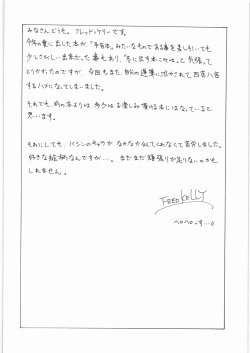 みなさんどうも。フレッド・ケリーです。
今年の夏に出した本が、「準備本」みたいなもので ある事を差し引いても
少しさびしい出来だった事もあり、「冬に出す本こそは」と 気張って
とりかかったのですが、今回もまた 自分の遅筆に泣かされて 四苦八苦
するハメになってしまいました。
それでも、前の本よりは、多少は お楽しみ頂ける本にはなっていると
思います。
それにしても、 なかなか似てくれなくて 苦労しました。
好きな絵柄なんですが…。まだまだ 頑張りが足りないのかも
しれません。
FRED KELLY
ペロペロっす…。